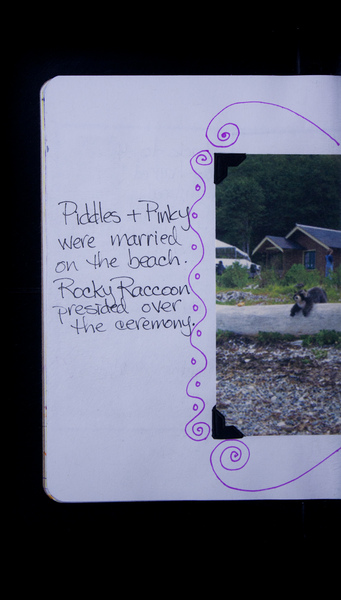 Piddles + Pinky
were married
on the beach.
Rocky Raccoon
presided over
the ceremony.